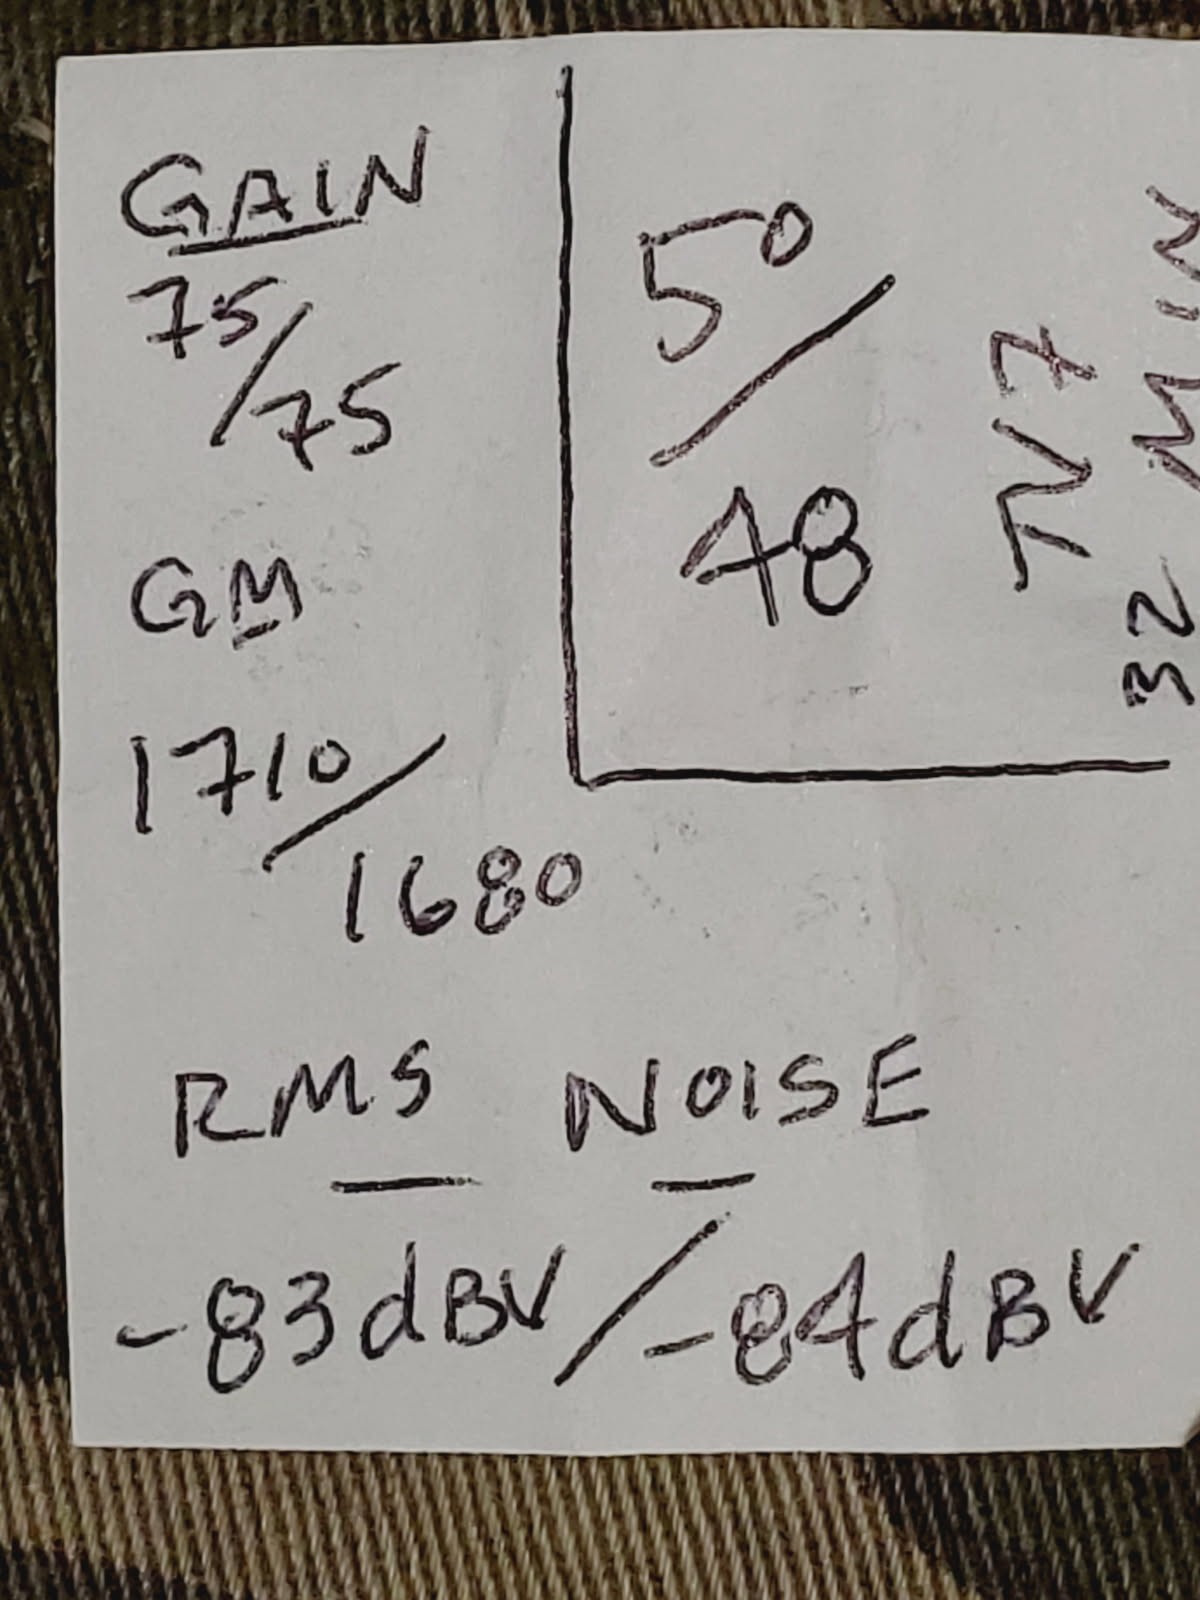 GAIN
75/75
GM
1710/1680
50/48
TV7
32 MIN
RMS NOISE
-83dBV/-84dBV